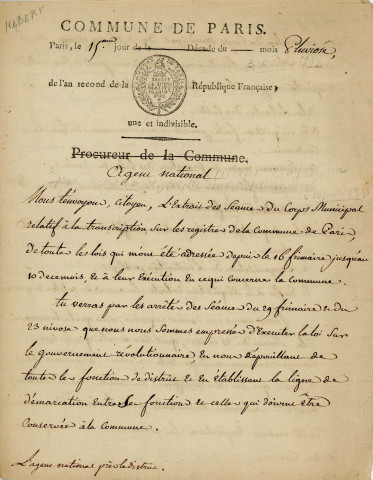 HABERT
COMMUNE DE PARIS.
Paris, le 15eme jour de la Décade du mois Pluviose,
de l'an second de la République Française,
une et indivisible.
Procureur de la Commune.
Agent national
Nous t'envoyons, Citoyen, L'Extrait des Seance du Corps Municipal
relatif à la transcription sur les registres de la Commune de Paris,
de toute les lois qui m'ont été adressée depuis le 16 frimaire jusquau
10 de ce mois, & à leur Execution En ce qui Concerne la Commune.
tu verras par les arrêté des Séance du 29 frimaire & du
23 nivose que nous nous Sommes empressé d'Executer la loi Sur
le gouvernement révolutionnaire En nous dépouillant de
toute les fonction de district & En établissant la ligne de
démarcation Entre Ses fonction & celles qui doivent être
Conservée à la Commune.
L'agent national près le district.